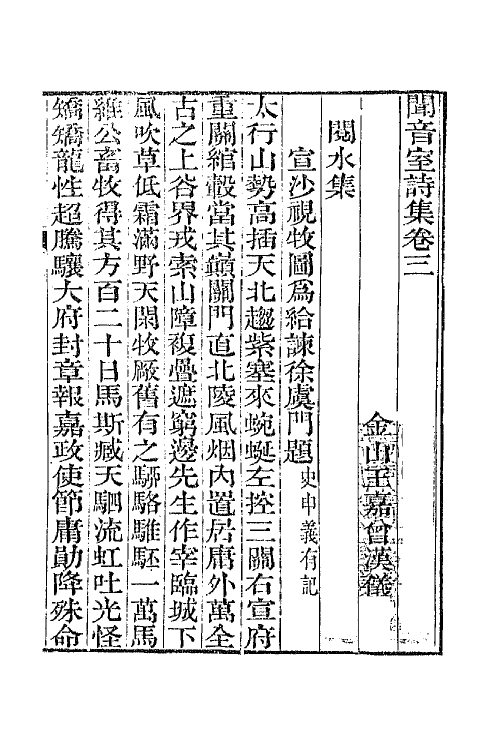 聞音室詩集卷三
金山王嘉曾漢儀
閱水集
宣沙視牧圖為給諫徐虞門題史申義有記
太行山勢高插天北趨紫塞來蜿蜒左控三關右宣府
重關綰轂當其巔關門直北陵風烟內置居庸外萬全
古之上谷界戎索山障複疊遮窮邊先生作宰臨城下
風吹草低霜滿野天閑牧廠舊有之駵駱騅駓一萬馬
維公畜牧得其方百二十日馬斯臧天駟流虹吐光怪
矯矯龍性超騰驤大府封章報嘉政使節庸勛降殊命